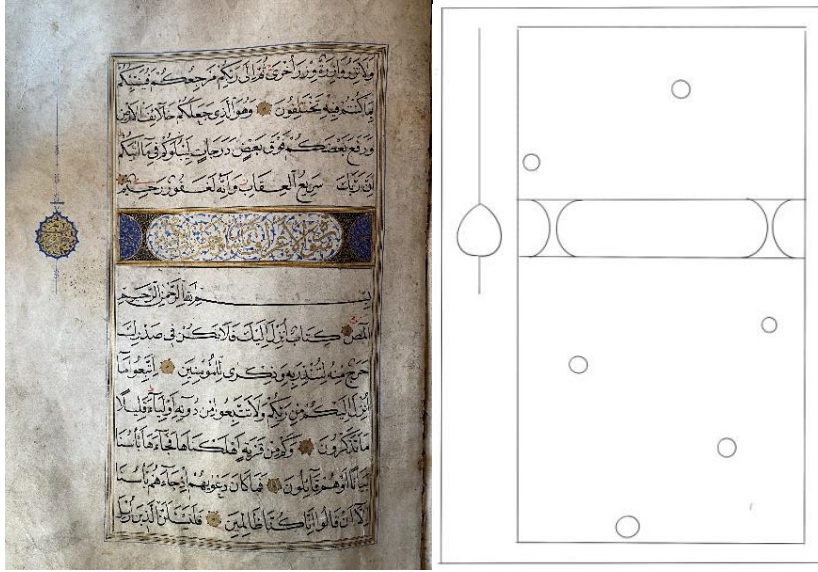 ولا تزر وازرة وزر أخرى ثم إلى ربكم مرجعكم فينبئكم
بما كنتم فيه تختلفون وهو الذي جعلكم خلائف الأرض
ورفع بعضكم فوق بعض درجات ليبلوكم في ما آتيكم
إن ربك سريع العقاب وإنه لغفور رحيم
بسم الله الرحمن الرحيم
المص كتاب أنزل إليك فلا يكن في صدرك
حرج منه لتنذر به وذكرى للمؤمنين اتبعوا ما
أنزل إليكم من ربكم ولا تتبعوا من دونه أولياء قليلا
ما تذكرون وكم من قرية أهلكناها فجاءها بأسنا
بياتا أو هم قائلون فما كان دعويهم إذ جاءهم بأسنا
إلا أن قالوا إنا كنا ظالمين فلنسئلن الذين أرسل